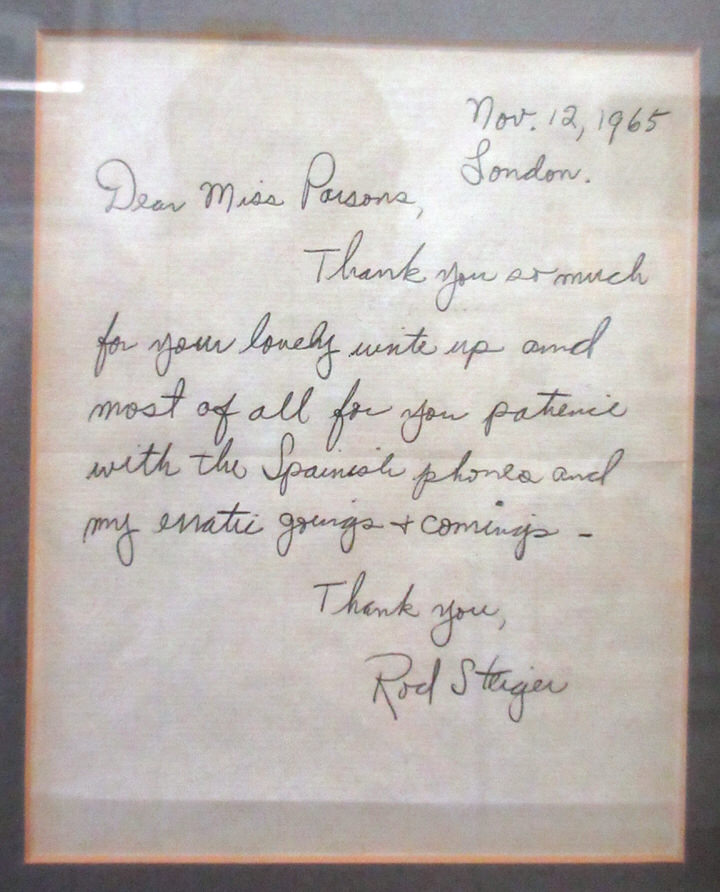 Nov. 12, 1965
London.
Dear Miss Parsons,
Thank you so much
for your lovely write up and
most of all for you patience
with the Spainish phones and
my erratic goings + comings -
Thank you,
Rod Steiger